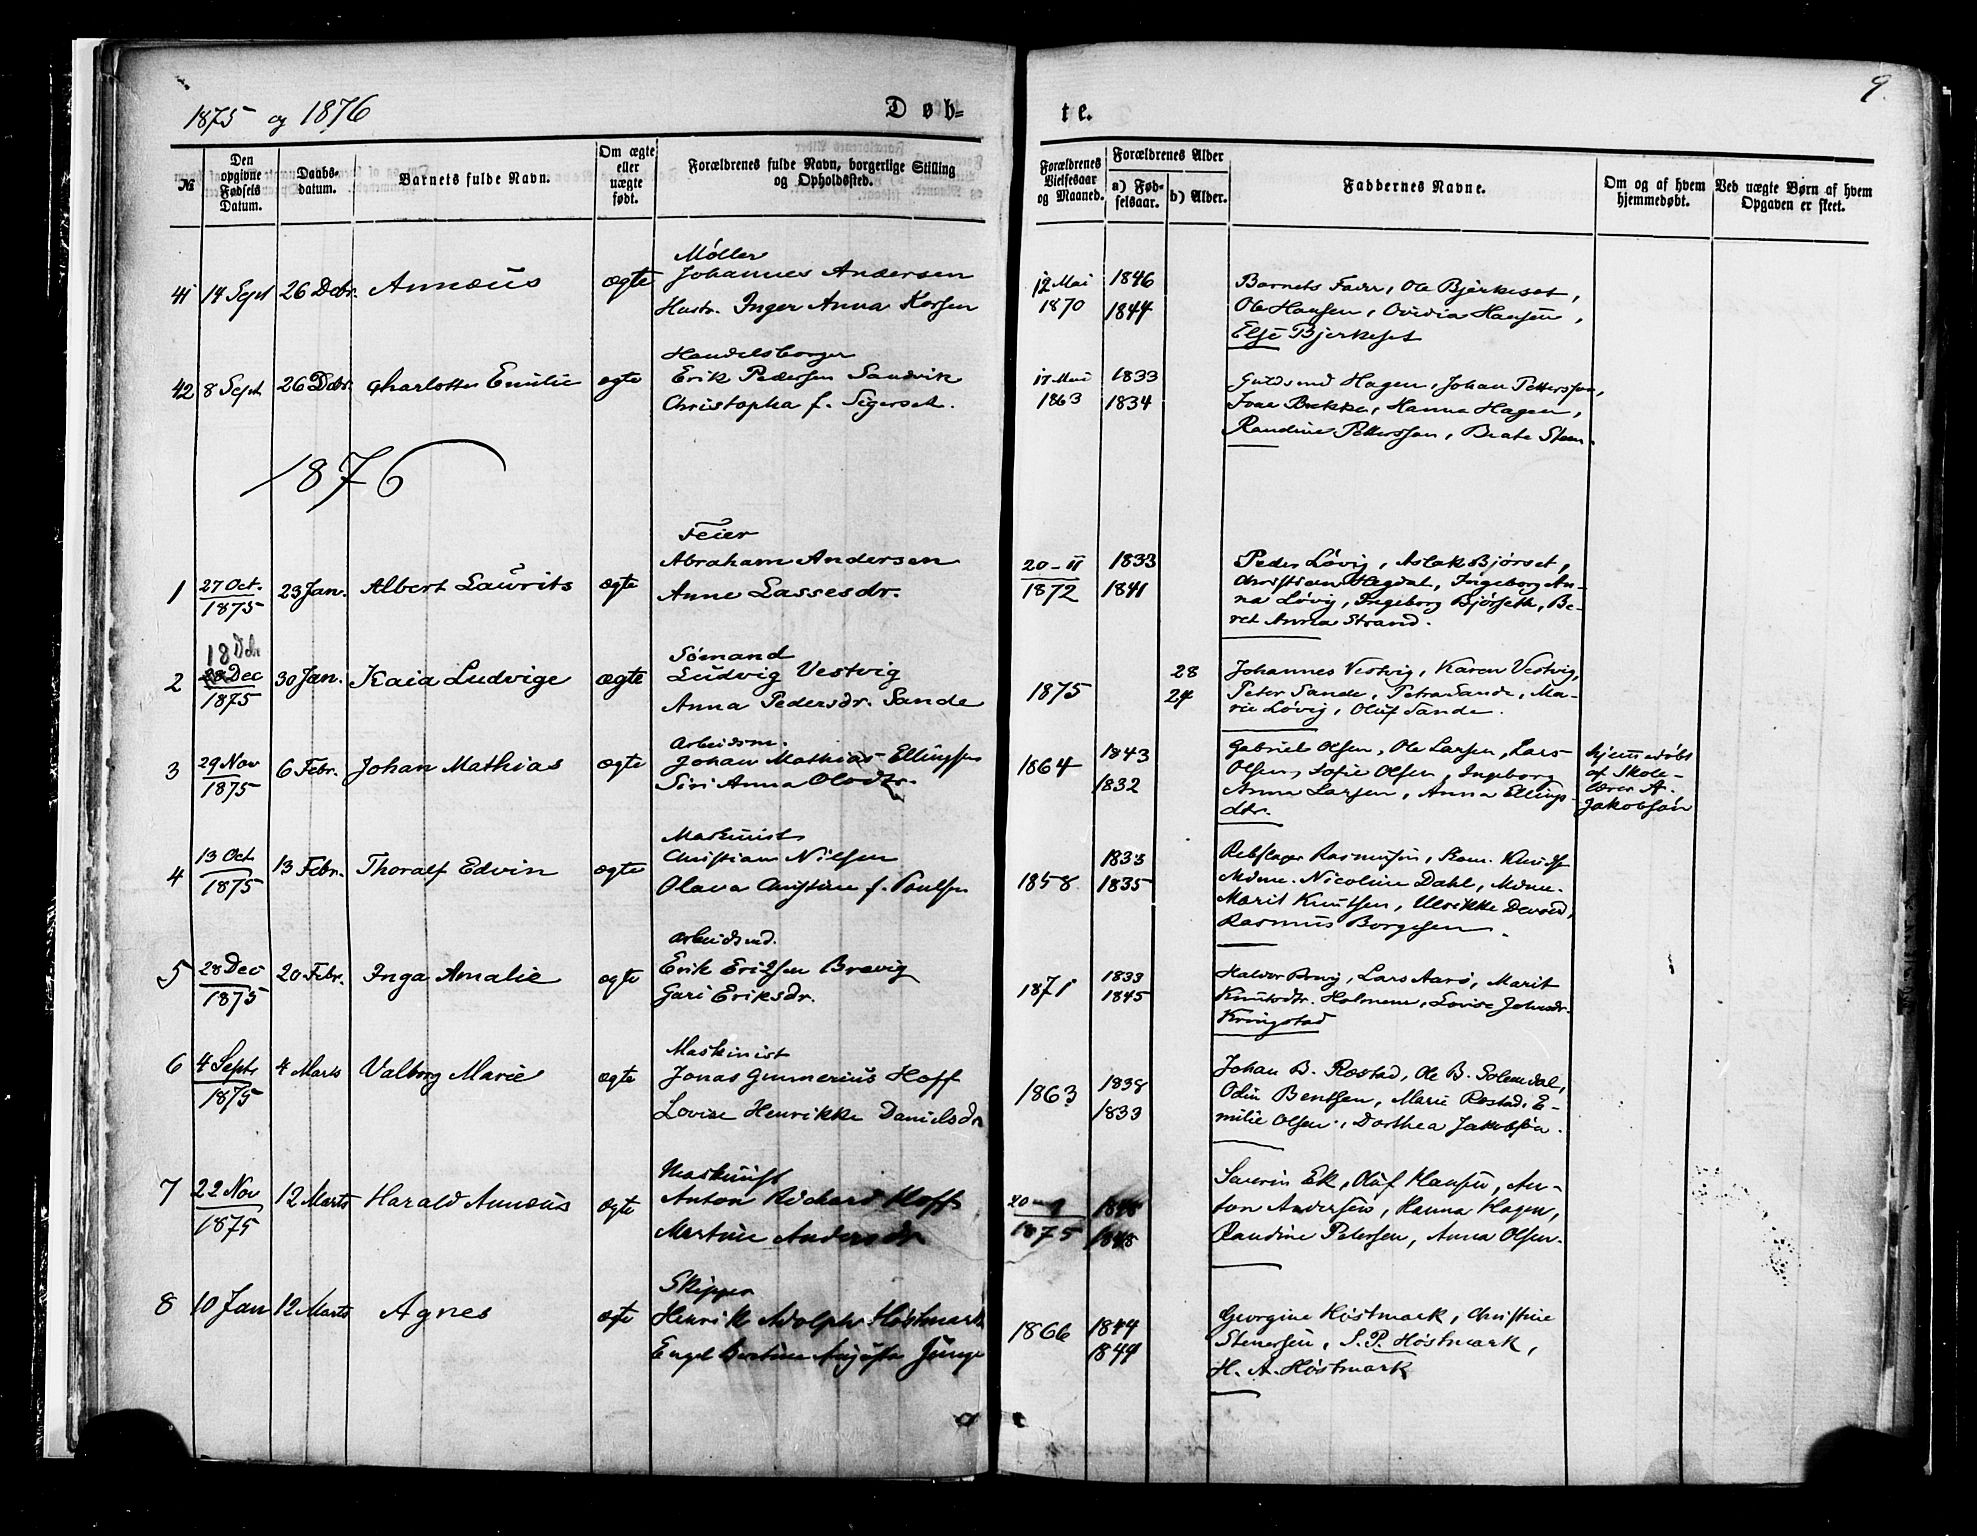 1875 og 1876
Døb-
te.
9.
№
Den opgivne Fødsels Datum.
Daabs-datum.
Barnets fulde Navn.
Om ægte eller uægte født.
Forældrenes fulde Navn, borgerlige Stilling og Opholdssted.
Forældrenes Vielsesaar og Maaned.
Forældrenes Alder
a) Fød-selsaar.
b) Alder.
Faddernes Navne.
Om og af hvem hjemmedøbt.
Ved uægte Børn af hvem Opgaven er skeet.
41 14 Sept 26 Dcbr. Annæus ægte
Møller
Johannes Andersen
Hustr. Inger Anna Korsen
12 Mai 1870
1846
1844
Barnets Fader, Ole Bjerkeset,
Ole Hansen, Ovidia Hansen,
Else Bjerkeset
42 8 Sept 26 Dcbr. Charlotte Emilie ægte
Handelsborger
Erik Pedersen Sandvik
Christopha f. Sigerset.
17 Mai 1863
1833
1834
Guldsmd Hagen, Johan Pettersson,
Ivar Bekke, Hanna Hagen,
Randine Petterssen, Beate Steen.
1876
1 27 Oct. 1875 23 Jan. Albert Laurits ægte
Feier
Abraham Andersen
Anne Lassesdr.
20-11 1872
1833
1841
Peder Løvig, Aslak Bjørset,
Christian Hagdal, Ingeborg An-
na Løvig, Ingeborg Bjørseth, Be-
ret Anna Strand.
18 Dcbr
2 28 Dec 1875 30 Jan. Kaia Ludvige ægte
Sømand
Ludvig Vestvig
Anna Pedersdr. Sande
1875
28
24
Johannes Vestvig, Karen Vestvig,
Peter Sande, Petra Sande, Ma-
rie Løvig, Oluf Sande.
3 29 Nov 1875 6 Febr. Johan Mathias ægte
Arbeidsm.
Johan Mathias Ellingsen
Siri Anna Olsdtr.
1864
1843
1832
Gabriel Olsen, Ole Larsen, Lars
Olsen, Sofie Olsen, Ingeborg
Anna Larsen, Anna Ellings-
dtr.
hjemmedøbt
af Skole-
lærer A.
Jakobsøn
4 13 Oct 1875 13 Febr. Thoralf Edvin ægte
Maskinist
Christian Nilsen
Olava Christine f. Poulsen
1858
1833
1835
Rebslager Rasmussen,
Mdme. Nicoline Dahl, Mdme.
Marit Knutsen, Ulrikke
Rasmus Borgesen.
5 28 Dec 1875 20 Febr. Inga Amalie ægte
Arbeidsmd.
Erik Eriksen Brevig
Gari Eriksdr.
1871
1833
1845
Halvor Brevig, Lars Aarø, Marit
Knutsdtr. Holmene, Lovise Johnsdr.
Kringstad
6 4 Sept. 1875 4 Marts Valborg Marie ægte
Maskinist
Jonas Gunnerius Hoff
Lovise Henrikke Danielsdr
1863
1838
1833
Johan B. Rostad, Ole B. Solemdal,
Odin Bentsen, Marie Rostad, E-
milie Olsen, Dorthea Jakobsen.
7 22 Nov 1875 12 Marts Harald Annæus ægte
Maskinist
Anton Richard Hoff
Martine Andersdr
20-9 1875
1848
Severin Ek, Oluf Hansen, An-
ton Andersen, Hanna Hagen,
Randine Petersen, Anna Olsen.
8 10 Jan 12 Marts Agnes ægte
Skipper
Henrik Adolph Høstmark
Engel Bertine Augusta Junge
1866
1844
1849
Georgine Høstmark, Christine
Stenersen, S. P. Høstmark,
H. A. Høstmark